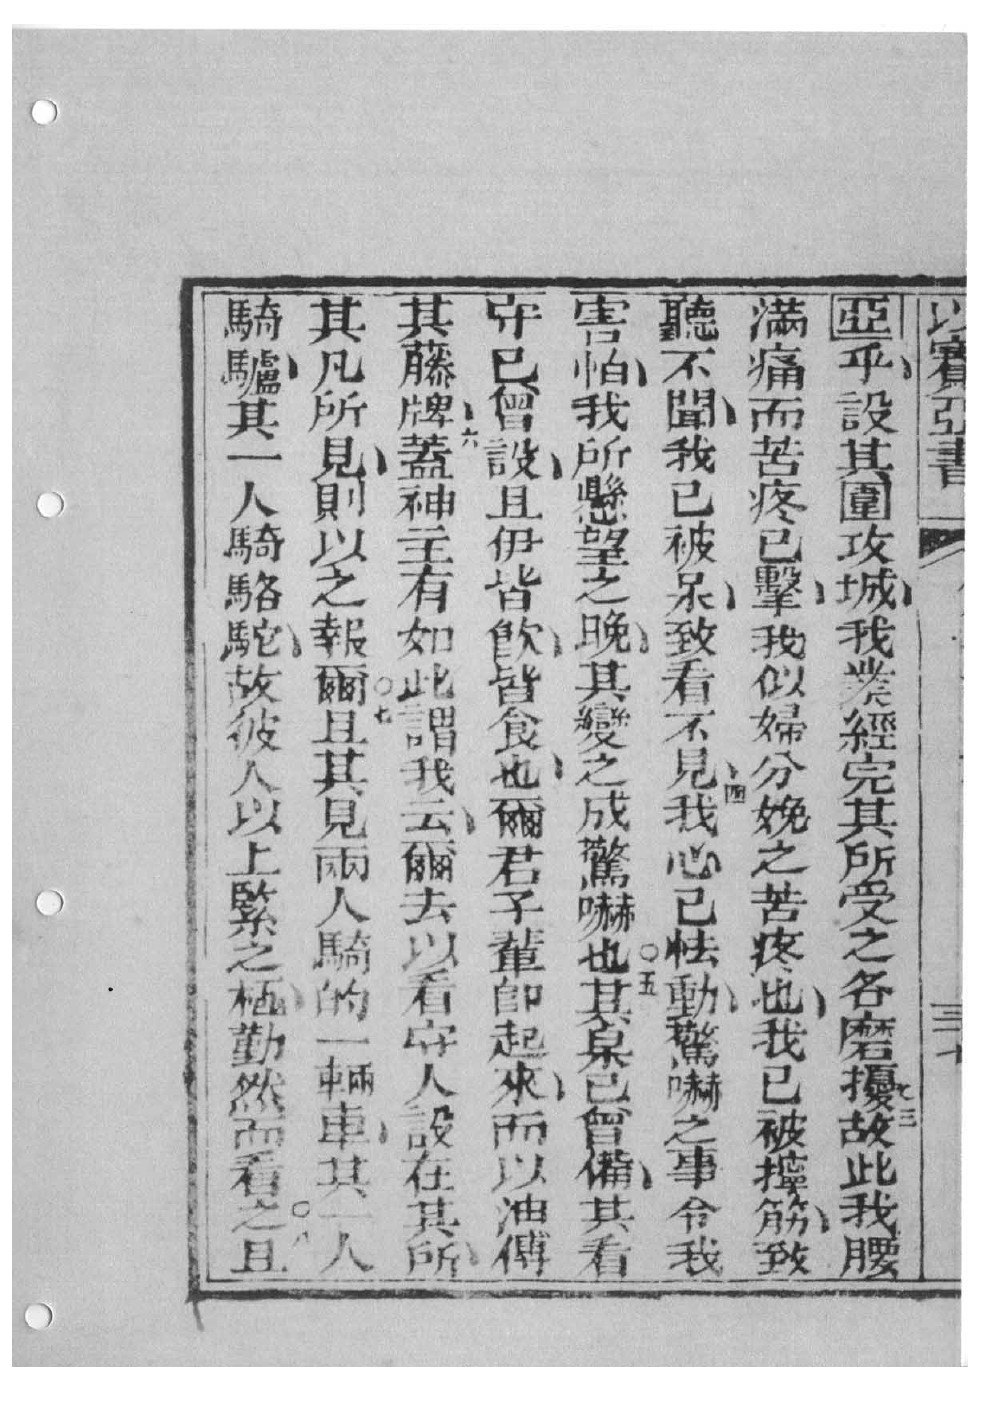 以賽亞書
三十
亞乎設其圍攻城我業經完其所受之各磨擾三故此我腰
滿痛而苦疼已擊我似婦分娩之苦疼也我已被擰筋致
聽不聞我已被呆致看不見四我心已怯動驚嚇之事令我
害怕我所懸望之晚其變之成驚嚇也○五其桌已曾備其看
守已曾設且伊皆飲皆食也爾君子輩卽起來而以油傅
其藤牌六蓋神主有如此謂我云爾去以看守人設在其所
其凡所見則以之報爾○七且其見兩人騎的一輛車其一人
騎驢其一人騎駱駝故彼人以上緊之極勤然而看之○八且